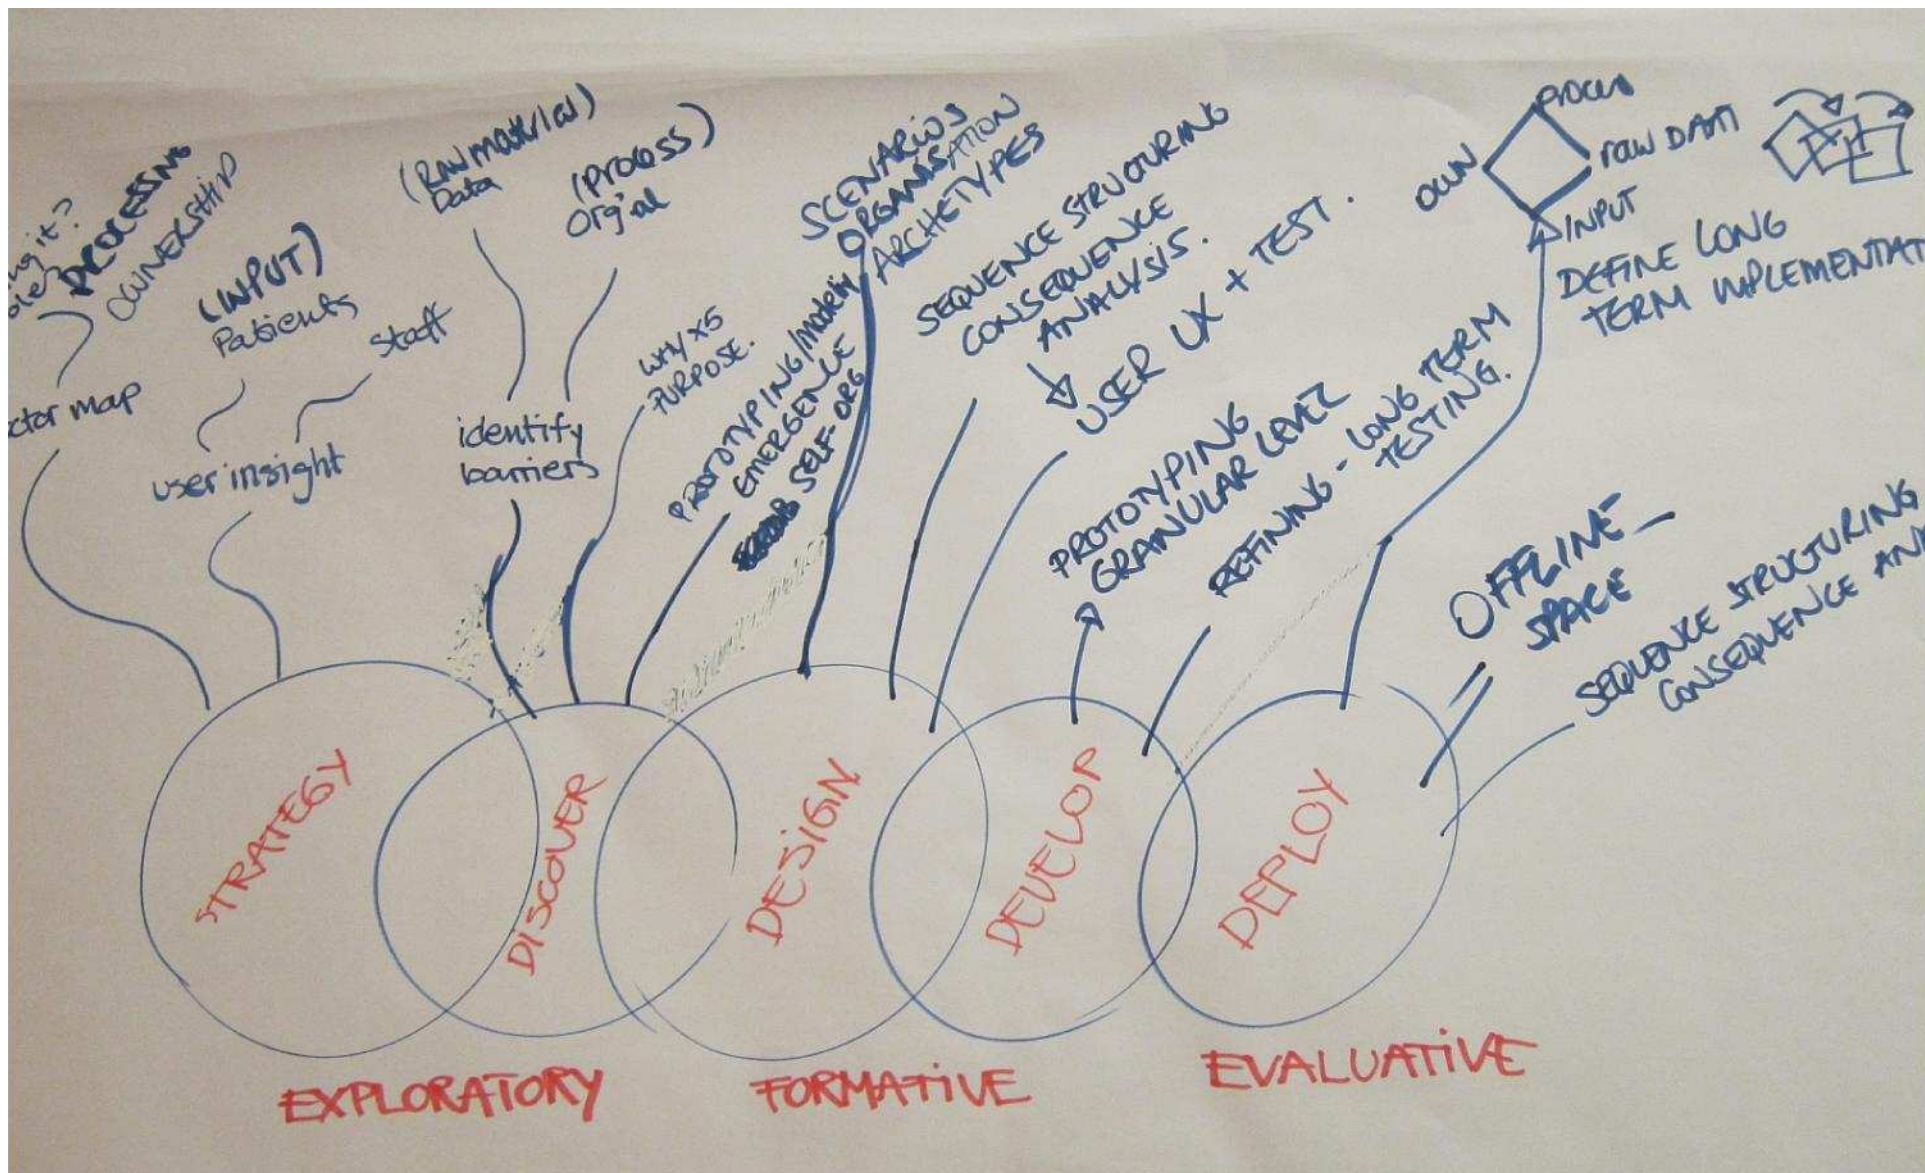 PROCESSING
OWNERSHIP
(INPUT)
Patients
Staff
map
user insight
(RAW MATERIAL)
Data
(PROCESS)
Org'al
identify
barriers
WHY X5
PURPOSE.
PROTOTYPING/
EMERGENCE
SELF-ORG
SCENARIOS
ORGANISATION
ARCHETYPES
SEQUENCE STRUCTURING
CONSEQUENCE
ANALYSIS.
USER UX + TEST.
PROTOTYPING
GRANULAR LEVEL
REFINING - LONG TERM
TESTING.
OWN
process
raw DATA
INPUT
DEFINE LONG
TERM IMPLEMENTAT
OFFLINE
SPACE
SEQUENCE STRUCTURING
CONSEQUENCE AN
STRATEGY
DISCOVER
DESIGN
DEVELOP
DEPLOY
EXPLORATORY
FORMATIVE
EVALUATIVE